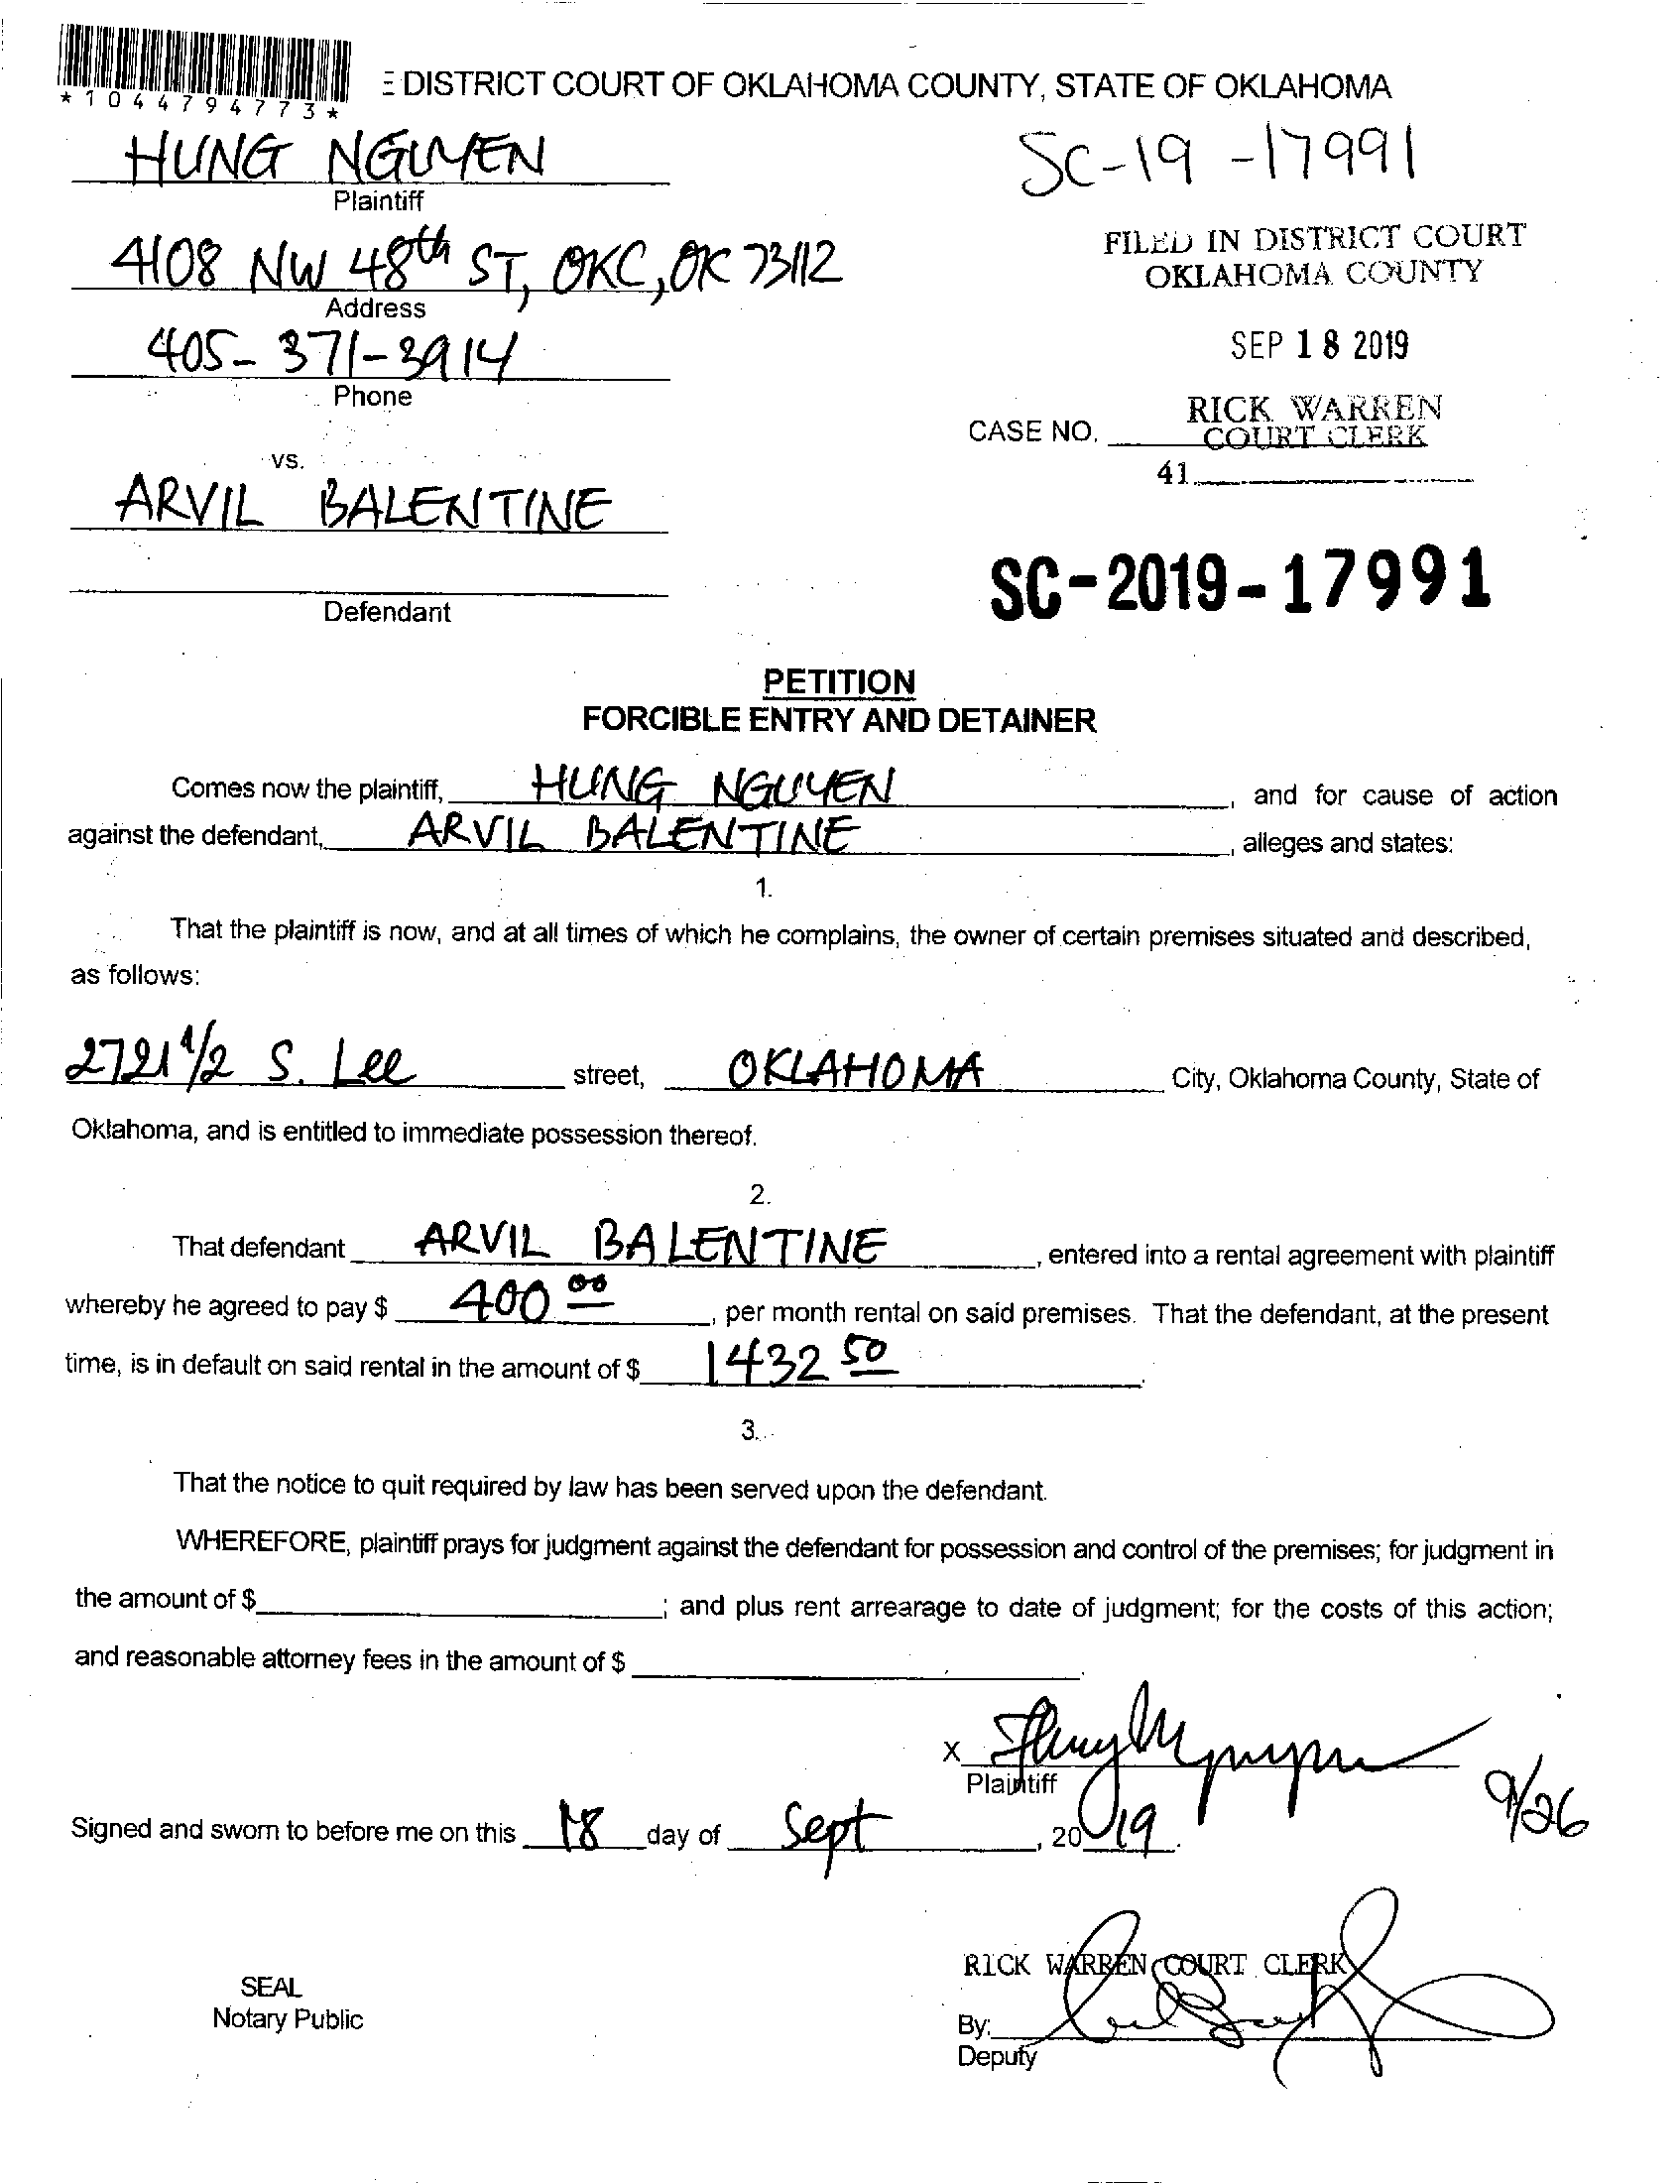 *1044794773*
E DISTRICT COURT OF OKLAHOMA COUNTY, STATE OF OKLAHOMA
HUNG NGUYEN
Plaintiff
SC-19-17991
4108 NW 48th ST, OKC, OK 73112
Address
FILED IN DISTRICT COURT
OKLAHOMA COUNTY
405-371-3914
Phone
SEP 18 2019
RICK WARREN
COURT CLERK
CASE NO.
41
vs.
ARVIL BALENTINE
Defendant
SC-2019-17991
PETITION
FORCIBLE ENTRY AND DETAINER
Comes now the plaintiff, HUNG NGUYEN, and for cause of action
against the defendant, ARVIL BALENTINE, alleges and states:
1.
That the plaintiff is now, and at all times of which he complains, the owner of certain premises situated and described,
as follows:
2721 1/2 S. Lee street, OKLAHOMA City, Oklahoma County, State of
Oklahoma, and is entitled to immediate possession thereof.
2.
That defendant ARVIL BALENTINE, entered into a rental agreement with plaintiff
whereby he agreed to pay $ 400 00, per month rental on said premises. That the defendant, at the present
time, is in default on said rental in the amount of $ 1432 50.
3.
That the notice to quit required by law has been served upon the defendant.
WHEREFORE, plaintiff prays for judgment against the defendant for possession and control of the premises; for judgment in
the amount of $ ; and plus rent arrearage to date of judgment; for the costs of this action;
and reasonable attorney fees in the amount of $ .
x
Plaintiff
9/26
Signed and sworn to before me on this 18 day of Sept, 2019.
RICK WARREN COURT CLERK
SEAL
Notary Public
By:
Deputy